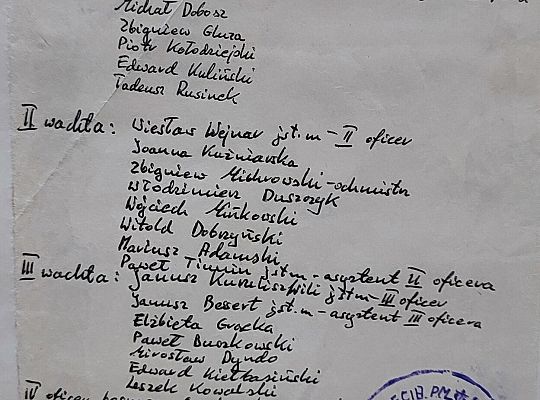 Michał Dobosz
Zbigniew Gluza
Piotr Kołodziejski
Edward Kuliński
Tadeusz Rusinek
II wachta: Wiesław Wejnar jst.m - II oficer
Joanna Kuźniarska
Zbigniew Michrowski - ochmistrz
Włodzimierz Duszczyk
Wojciech Mińkowski
Witold Dobrzyński
Mariusz Adamski
Paweł jst.m - asystent II oficera
III wachta: Janusz jstm - III oficer
Janusz Bessert jst.m - asystent III oficera
Elżbieta Grocka
Paweł Buszkowski
Mirosław Dyndo
Edward Kiełbasiński
Leszek Kowalski
IV oficer